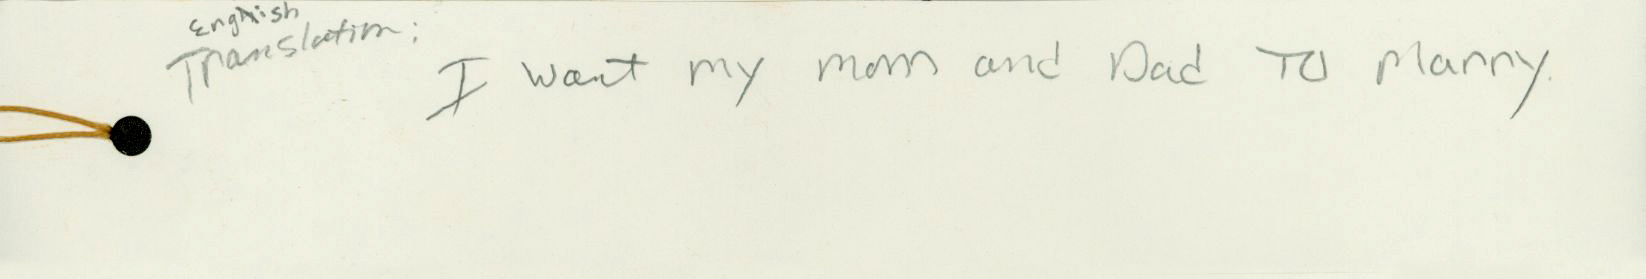 English
Translation:
I want my mom and Dad To Marry.